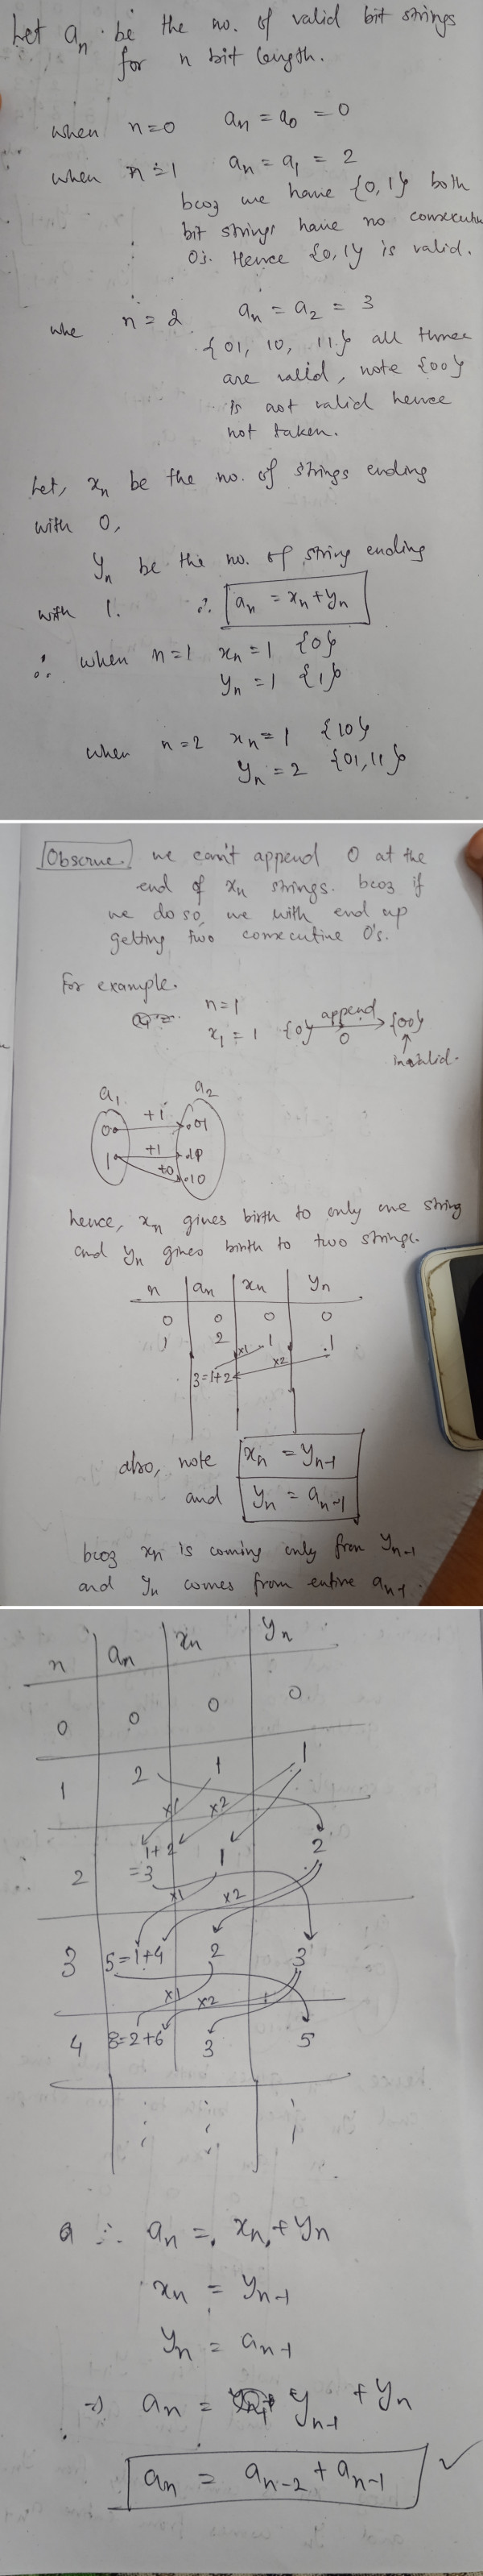 Let an be the no. of valid bit strings
for n bit length.
when n=0 an = a0 = 0
when n=1 an = a1 = 2
bcoz we have {0,1} both
bit strings have no consecutive
0s. Hence {0,1} is valid.
whe n=2 an = a2 = 3
{01, 10, 11} all three
are valid, note {00}
is not valid hence
not taken.
Let, xn be the no. of strings ending
with 0,
yn be the no. of string ending
with 1. ∴ an = xn + yn
∴ when n=1 xn = 1 {0}
yn = 1 {1}
when n=2 xn = 1 {10}
yn = 2 {01,11}
Observe. we can't append 0 at the
end of xn strings. bcoz if
we do so, we with end up
getting two consecutive 0's.
For example.
n=1
x1 = 1 {0} append 0 → {00}
↑
invalid.
a1 a2
0 +1 01
1 +1 11
+0 10
hence, xn gives birth to only one string
and yn gives birth to two strings.
n an xn yn
0 0 0 0
1 2 1 1
x1 x2
3=1+2
also, note xn = yn-1
and yn = an-1
bcoz xn is coming only from yn-1
and yn comes from entire an-1.
n an xn yn
0 0 0 0
1 2 1 1
x1 x2
2 1+2 =3 1 2
x1 x2
3 5=1+4 2 3
x1 x2
4 8=2+6 3 5
∴ an = xn + yn
xn = yn-1
yn = an-1
⇒ an = yn-1 + yn
an = an-2 + an-1 ✓